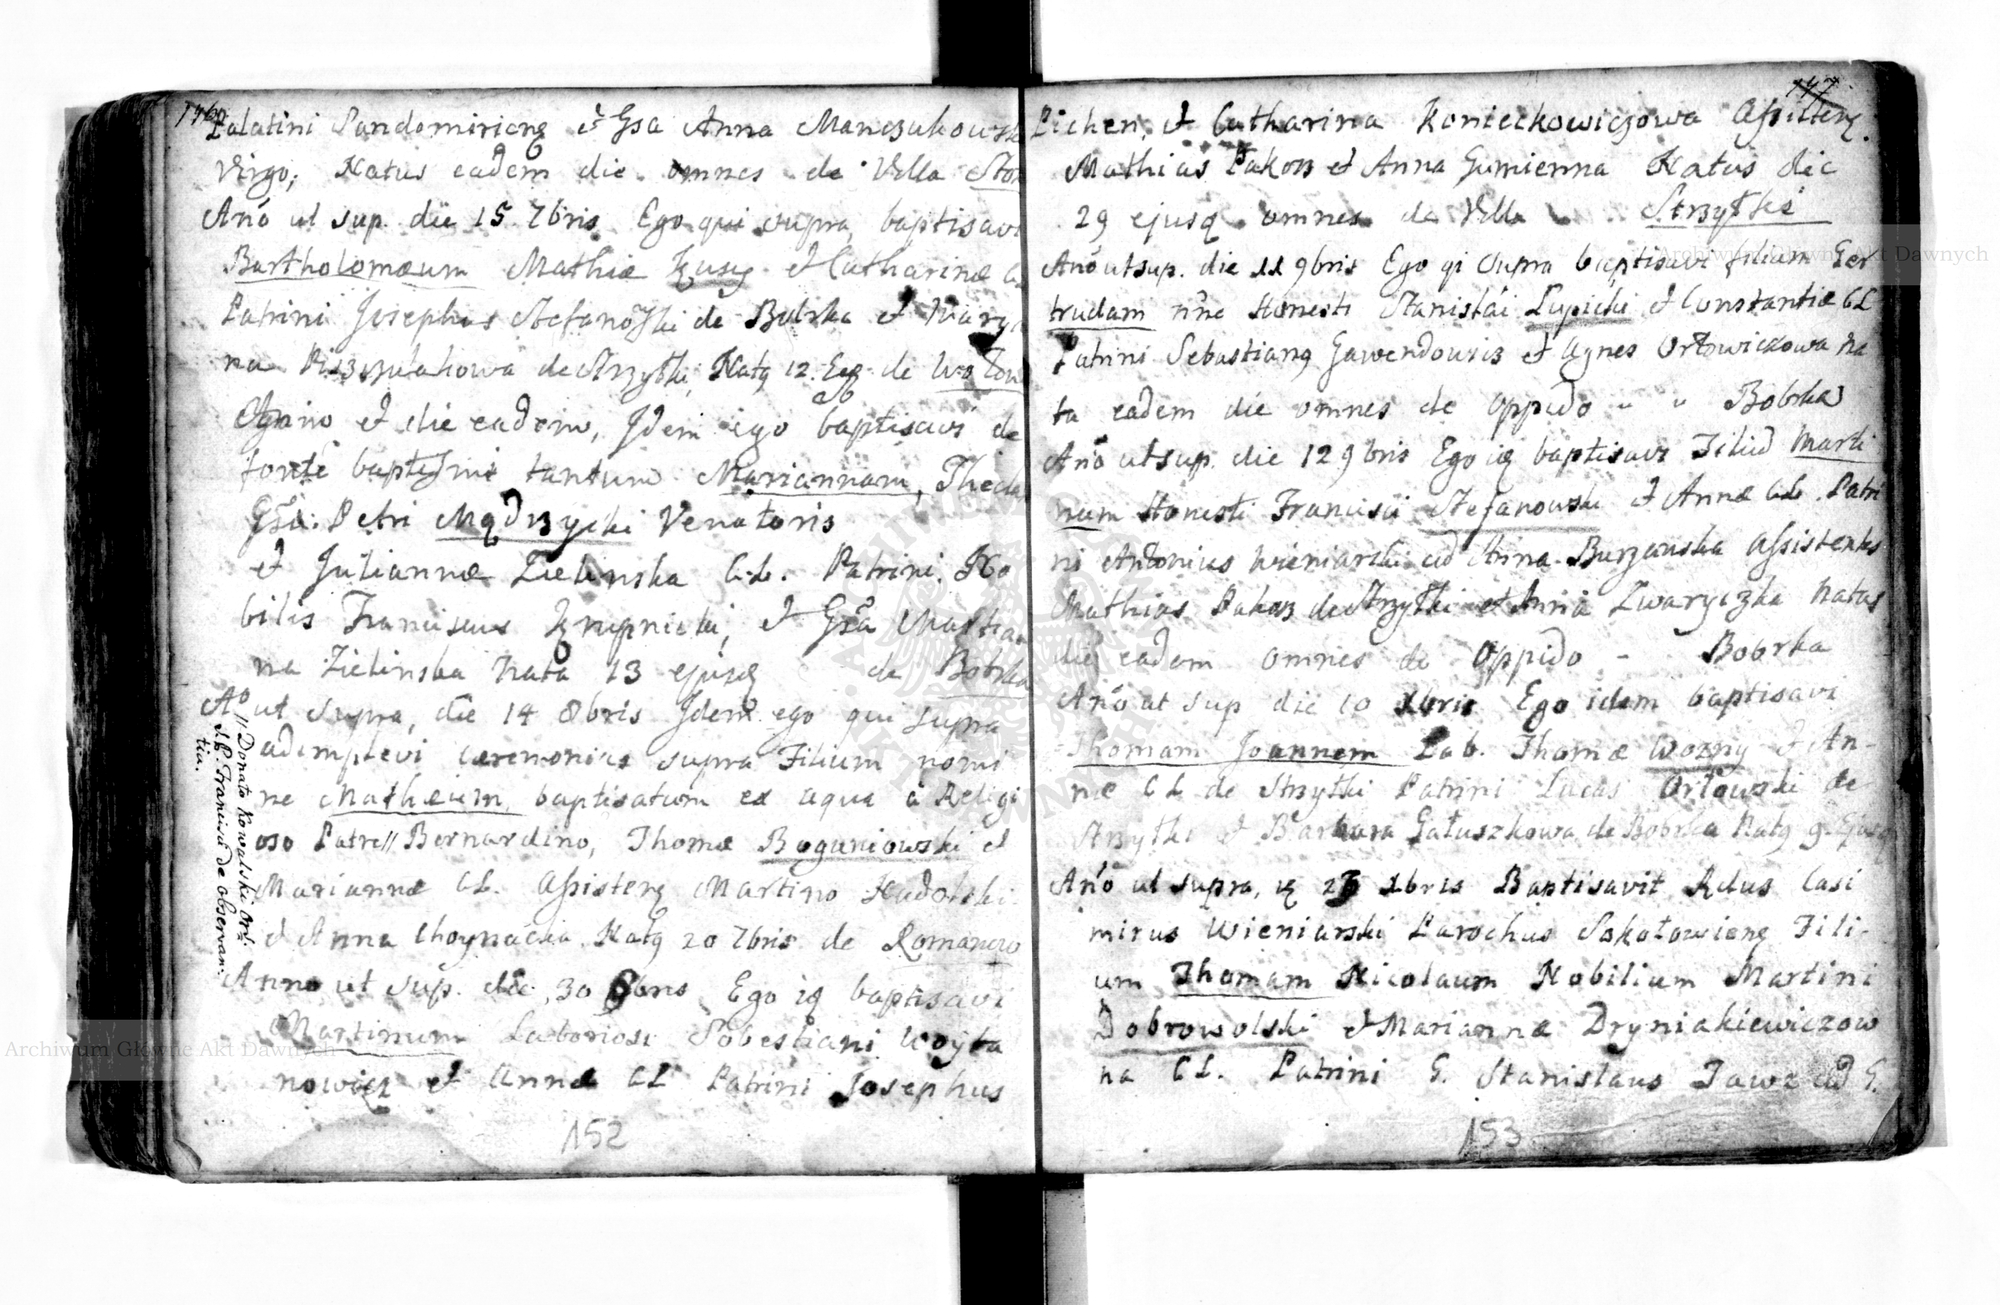 146
Palatini Sandomirienę et Gsa Anna Manczukowsk
Virgo; Natus eadem die omnes de Villa
Ano ut sup. die 15 7bris Ego qui supra baptisavi
Bartholomæum Mathiæ et Catharinæ
Patrini Josephus Stefanoski de Bobrka et Marya
na de Strzytki Natq 12 Ejq de
Anno et die eadem, Idem ego baptisavi de
fonte baptismi tantum Mariannam, Theclam
Gsi. Petri Mądrzycki Venatoris
et Juliannæ Zielinska C.L. Patrini No
bilis Franciscus Krupnicki, et Gsa Marian
na Zielinska Nata 13 ejusq de Bobrka
Ao ut supra, die 14 8bris Idem ego qui supra
adimplevi ceremonias supra Filium nomi
ne Matheum, baptisatum ex aqua a Religi
oso Patre // Bernardino, Thomæ Boguniowski et
Mariannæ CL. Assistenę Martino Nadolski
et Anna Choynacka Natq 20 7bris de Romanow
Anno ut sup. die 30 8bris Ego iq baptisavi
Martinum Laboriosi Sebestiani Woyta
nowicz et Annæ CL Patrini Josephus
// Donato Kowalski Ord.
d. P. Francisci de observan:
tia.
152
147
Pichen, et Catharina Konieckowiczowa Assistenę
Mathias Pakosz et Anna Gumienna Natus die
29 ejusq omnes de Villa Strzytki
Ano ut sup. die 11 9bris Ego qi supra baptisavi filiam Ger
trudam nne Honesti Stanislai Lupicki et Constantiæ CL
Patrini Sebastianq Gawendowicz et Agnes Orłowickowa Na
ta eadem die omnes de Oppido " " Bobrka
Ano ut sup. die 12 9bris Ego iq baptisavi Filiu Marti
num Honesti Francisci Stefanowski et Annæ CL. Patri
ni Antonius Wieniarski cu Anna Burzanska Assistentes
Mathias Pakosz de Strzytki et Anna Zwaryczka Natus
die eadem omnes de Oppido - Bobrka
Ano ut sup die 10 Xbris Ego idem baptisavi
Thomam Joannem Lab. Thomæ Wozny et An-
næ CL de Strzytki Patrini Lucas Orłowski de
Strzytki et Barbara Gałuszkowa de Bobrka Natq 9. Ejusq
Ano ut supra, iq 23 Xbris Baptisavit Rdus Casi
mirus Wieniarski Parochus Sokołowienę Fili-
um Thomam Nicolaum Nobilium Martini
Dobrowolski et Mariannæ Dryniakiewiczow
na CL. Patrini G. Stanislaus Jawz cu G.
153
Archiwum Główne Akt Dawnych
Archiwum Główne Akt Dawnych